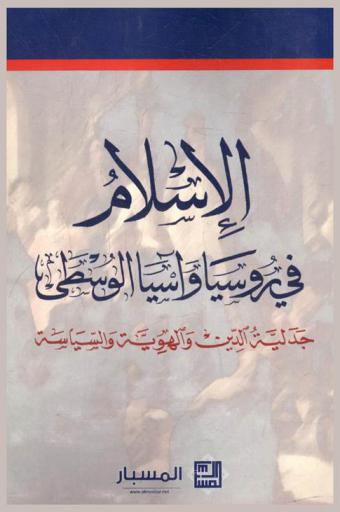 الإسلام
في روسيا وآسيا الوسطى
جدلية الدين والهوية والسياسة
المسبار
المسبار
www.almesbar.net